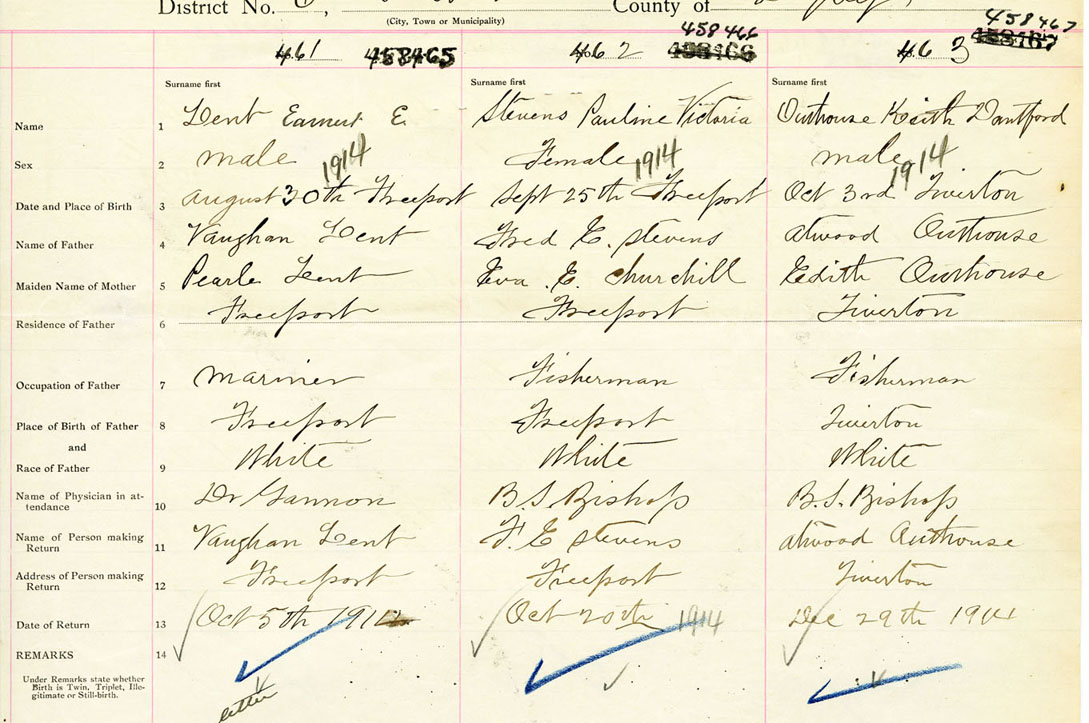 District No. County of
(City, Town or Municipality)
461 458465 462 458466 463 458467
Surname first Surname first Surname first
Name 1 Lent Earnest E. Stevens Pauline Victoria Outhouse Keith Dantford
Sex 2 male 1914 Female 1914 male 1914
Date and Place of Birth 3 august 30th Freeport Sept 25th Freeport Oct 3rd Tiverton
Name of Father 4 Vaughan Lent Fred E. Stevens atwood Outhouse
Maiden Name of Mother 5 Pearle Lent Eva E. Churchill Edith Outhouse
Residence of Father 6 Freeport Freeport Tiverton
Occupation of Father 7 mariner Fisherman Fisherman
Place of Birth of Father 8 Freeport Freeport Tiverton
and
Race of Father 9 White White White
Name of Physician in at-
tendance 10 Dr Gannon B.S. Bishop B.S. Bishop
Name of Person making
Return 11 Vaughan Lent F. E Stevens atwood Outhouse
Address of Person making
Return 12 Freeport Freeport Tiverton
Date of Return 13 Oct 5th 1914 Oct 20th 1914 Dec 29th 1914
REMARKS 14
Under Remarks state whether
Birth is Twin, Triplet, Ille-
gitimate or Still-birth.
letter